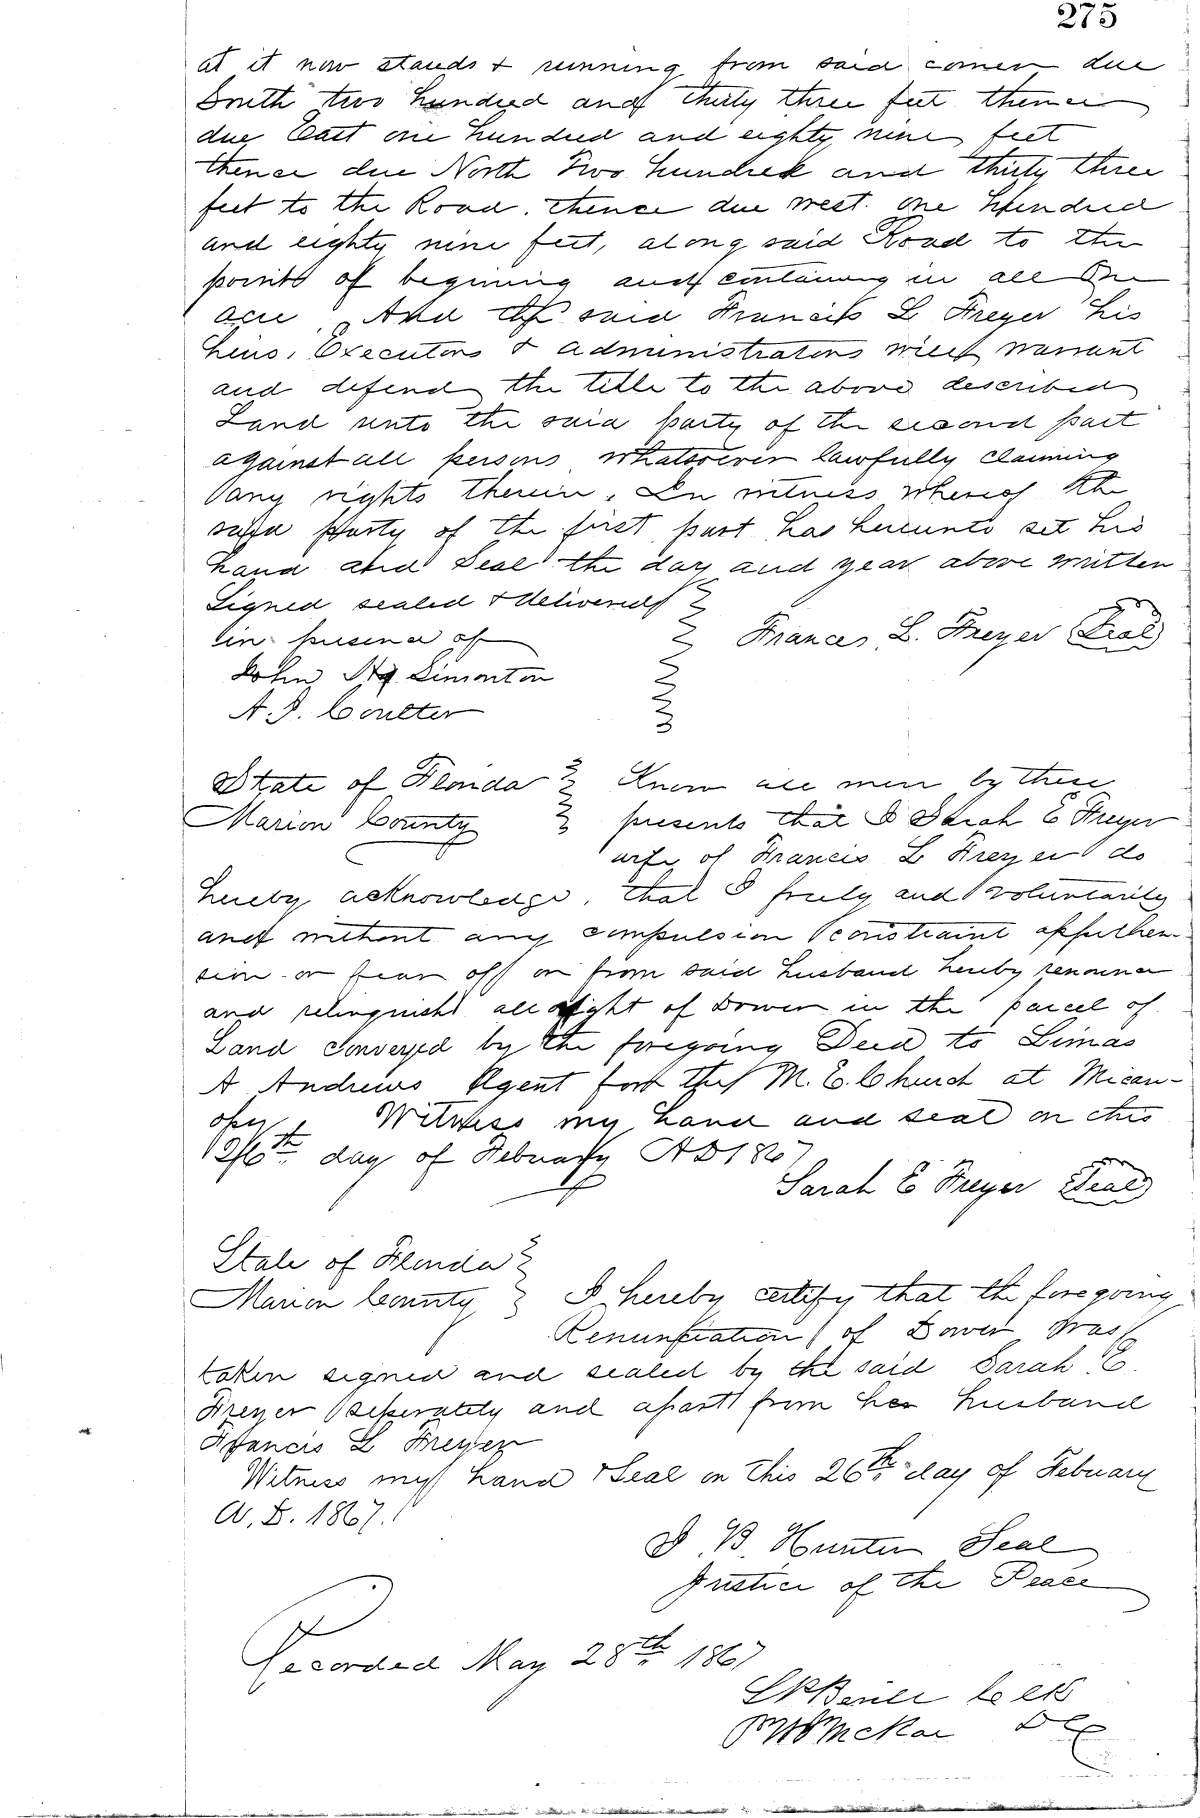 275
at it now stands & running from said corner due
South two hundred and thirty three feet thence
due East one hundred and eighty nine feet
thence due North Two hundred and thirty three
feet to the Road. thence due west one hundred
and eighty nine feet, along said Road to the
point of begining and containing in all One
acre, And the said Francis L Freyer his
heirs, Executors & administrators will warrant
and defend the title to the above described
Land unto the said party of the second part
against all persons whatsoever lawfully claiming
any rights therein. In witness whereof the
said Party of the first part has hereunto set his
hand and Seal the day and year above written
Signed sealed & delivered
in presence of Frances L. Freyer Seal
John Simonton
A. J. Coulter
State of Florida Know all men by these
Marion County presents that I Sarah E Freyer
wife of Francis L Freyer do
hereby acknowledge, that I freely and voluntarily
and without any compulsion constraint apprehen-
sion or fear off or from said husband hereby renounce
and relinquish all right of Dower in the parcel of
Land conveyed by the foregoing Deed to Simas
A Andrews Agent for the M. E. Church at Mican-
opy, Witness my hand and seal on this
26th day of Febuary AD 1867
Sarah E Freyer Seal
State of Florida
Marion County I hereby certify that the foregoing
Renunciation of Dower was
taken signed and sealed by the said Sarah E.
Freyer seperately and apart from her husband
Francis L Freyer
Witness my hand & Seal on this 26th day of Febuary
A. D. 1867.
J. B. Hunter Seal
Justice of the Peace
Recorded May 28th 1867
Clk
McRae DC